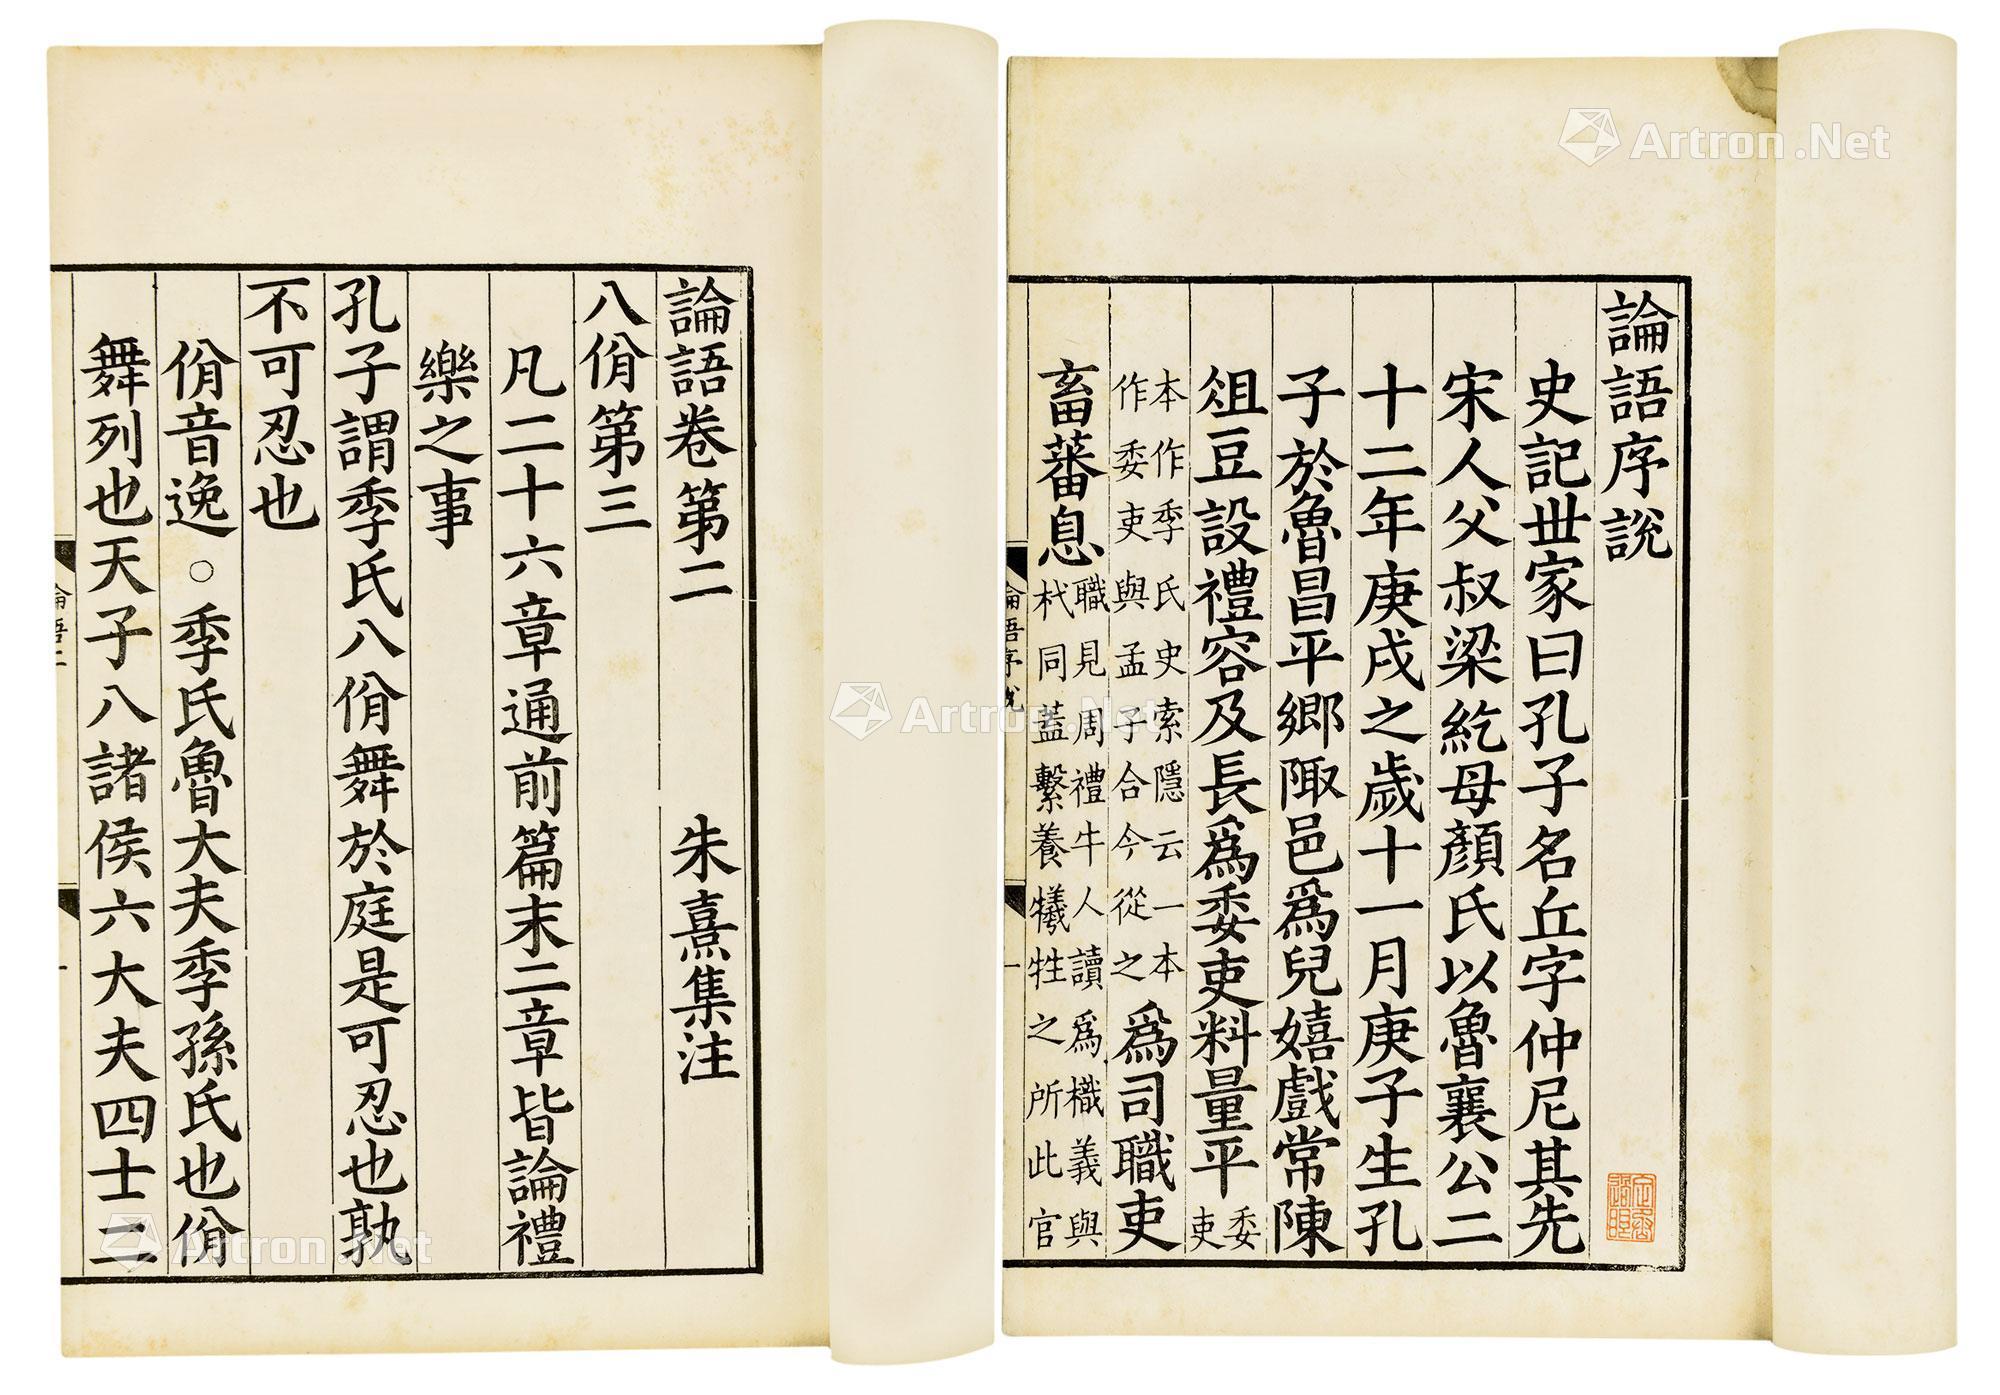 論語序説
史記世家曰孔子名丘字仲尼其先
宋人父叔梁紇母顔氏以魯襄公二
十二年庚戌之歲十一月庚子生孔
子於魯昌平郷陬邑爲兒嬉戲常陳
俎豆設禮容及長爲委吏料量平委吏
本作季氏史索隱云一本作委吏與孟子合今從之爲司職吏
畜蕃息職見周禮牛人讀爲樴義與杙同蓋繫養犧牲之所此官
論語序説
一
論語卷第二
朱熹集注
八佾第三
凡二十六章通前篇末二章皆論禮
樂之事
孔子謂季氏八佾舞於庭是可忍也孰
不可忍也
佾音逸○季氏魯大夫季孫氏也佾
舞列也天子八諸侯六大夫四士二
論語二
一
Artron.Net
Artron.Net
Artron.Net